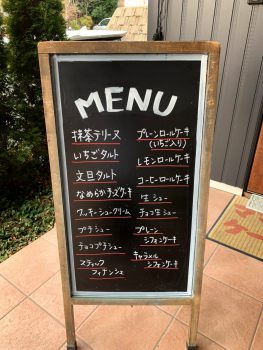 MENU
抹茶テリーヌ
いちごタルト
文旦タルト
なめらかチーズケーキ
クッキーシュークリーム
プチシュー
チョコプチシュー
スティック
フィナンシェ
プレーンロールケーキ
(いちご入り)
レモンロールケーキ
コーヒーロールケーキ
生シュー
チョコ生シュー
プレーン
シフォンケーキ
キャラメル
シフォンケーキ